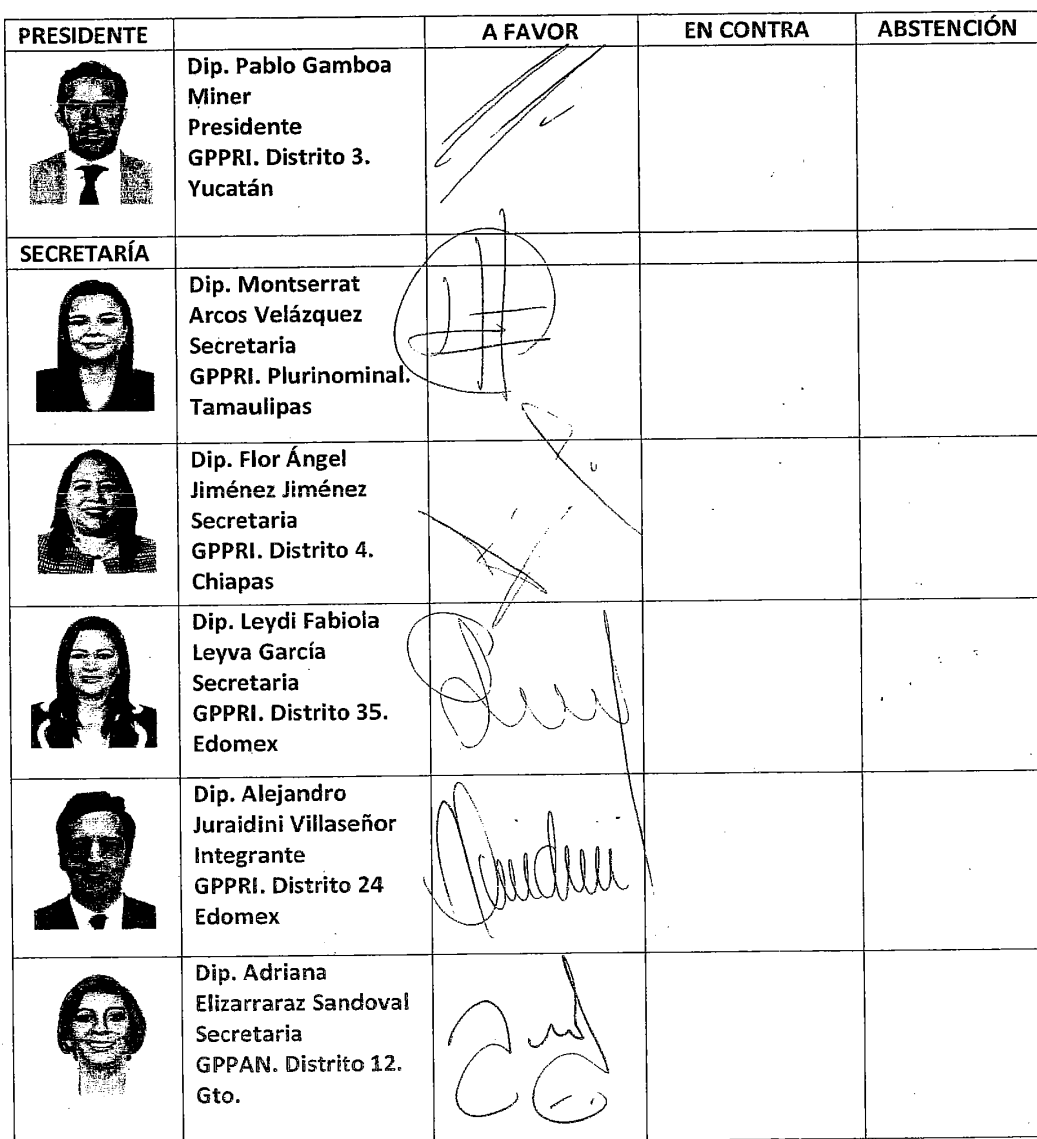 PRESIDENTE A FAVOR EN CONTRA ABSTENCIÓN
Dip. Pablo Gamboa
Miner
Presidente
GPPRI. Distrito 3.
Yucatán
SECRETARÍA
Dip. Montserrat
Arcos Velázquez
Secretaria
GPPRI. Plurinominal.
Tamaulipas
Dip. Flor Ángel
Jiménez Jiménez
Secretaria
GPPRI. Distrito 4.
Chiapas
Dip. Leydi Fabiola
Leyva García
Secretaria
GPPRI. Distrito 35.
Edomex
Dip. Alejandro
Juraidini Villaseñor
Integrante
GPPRI. Distrito 24
Edomex
Dip. Adriana
Elizarraraz Sandoval
Secretaria
GPPAN. Distrito 12.
Gto.